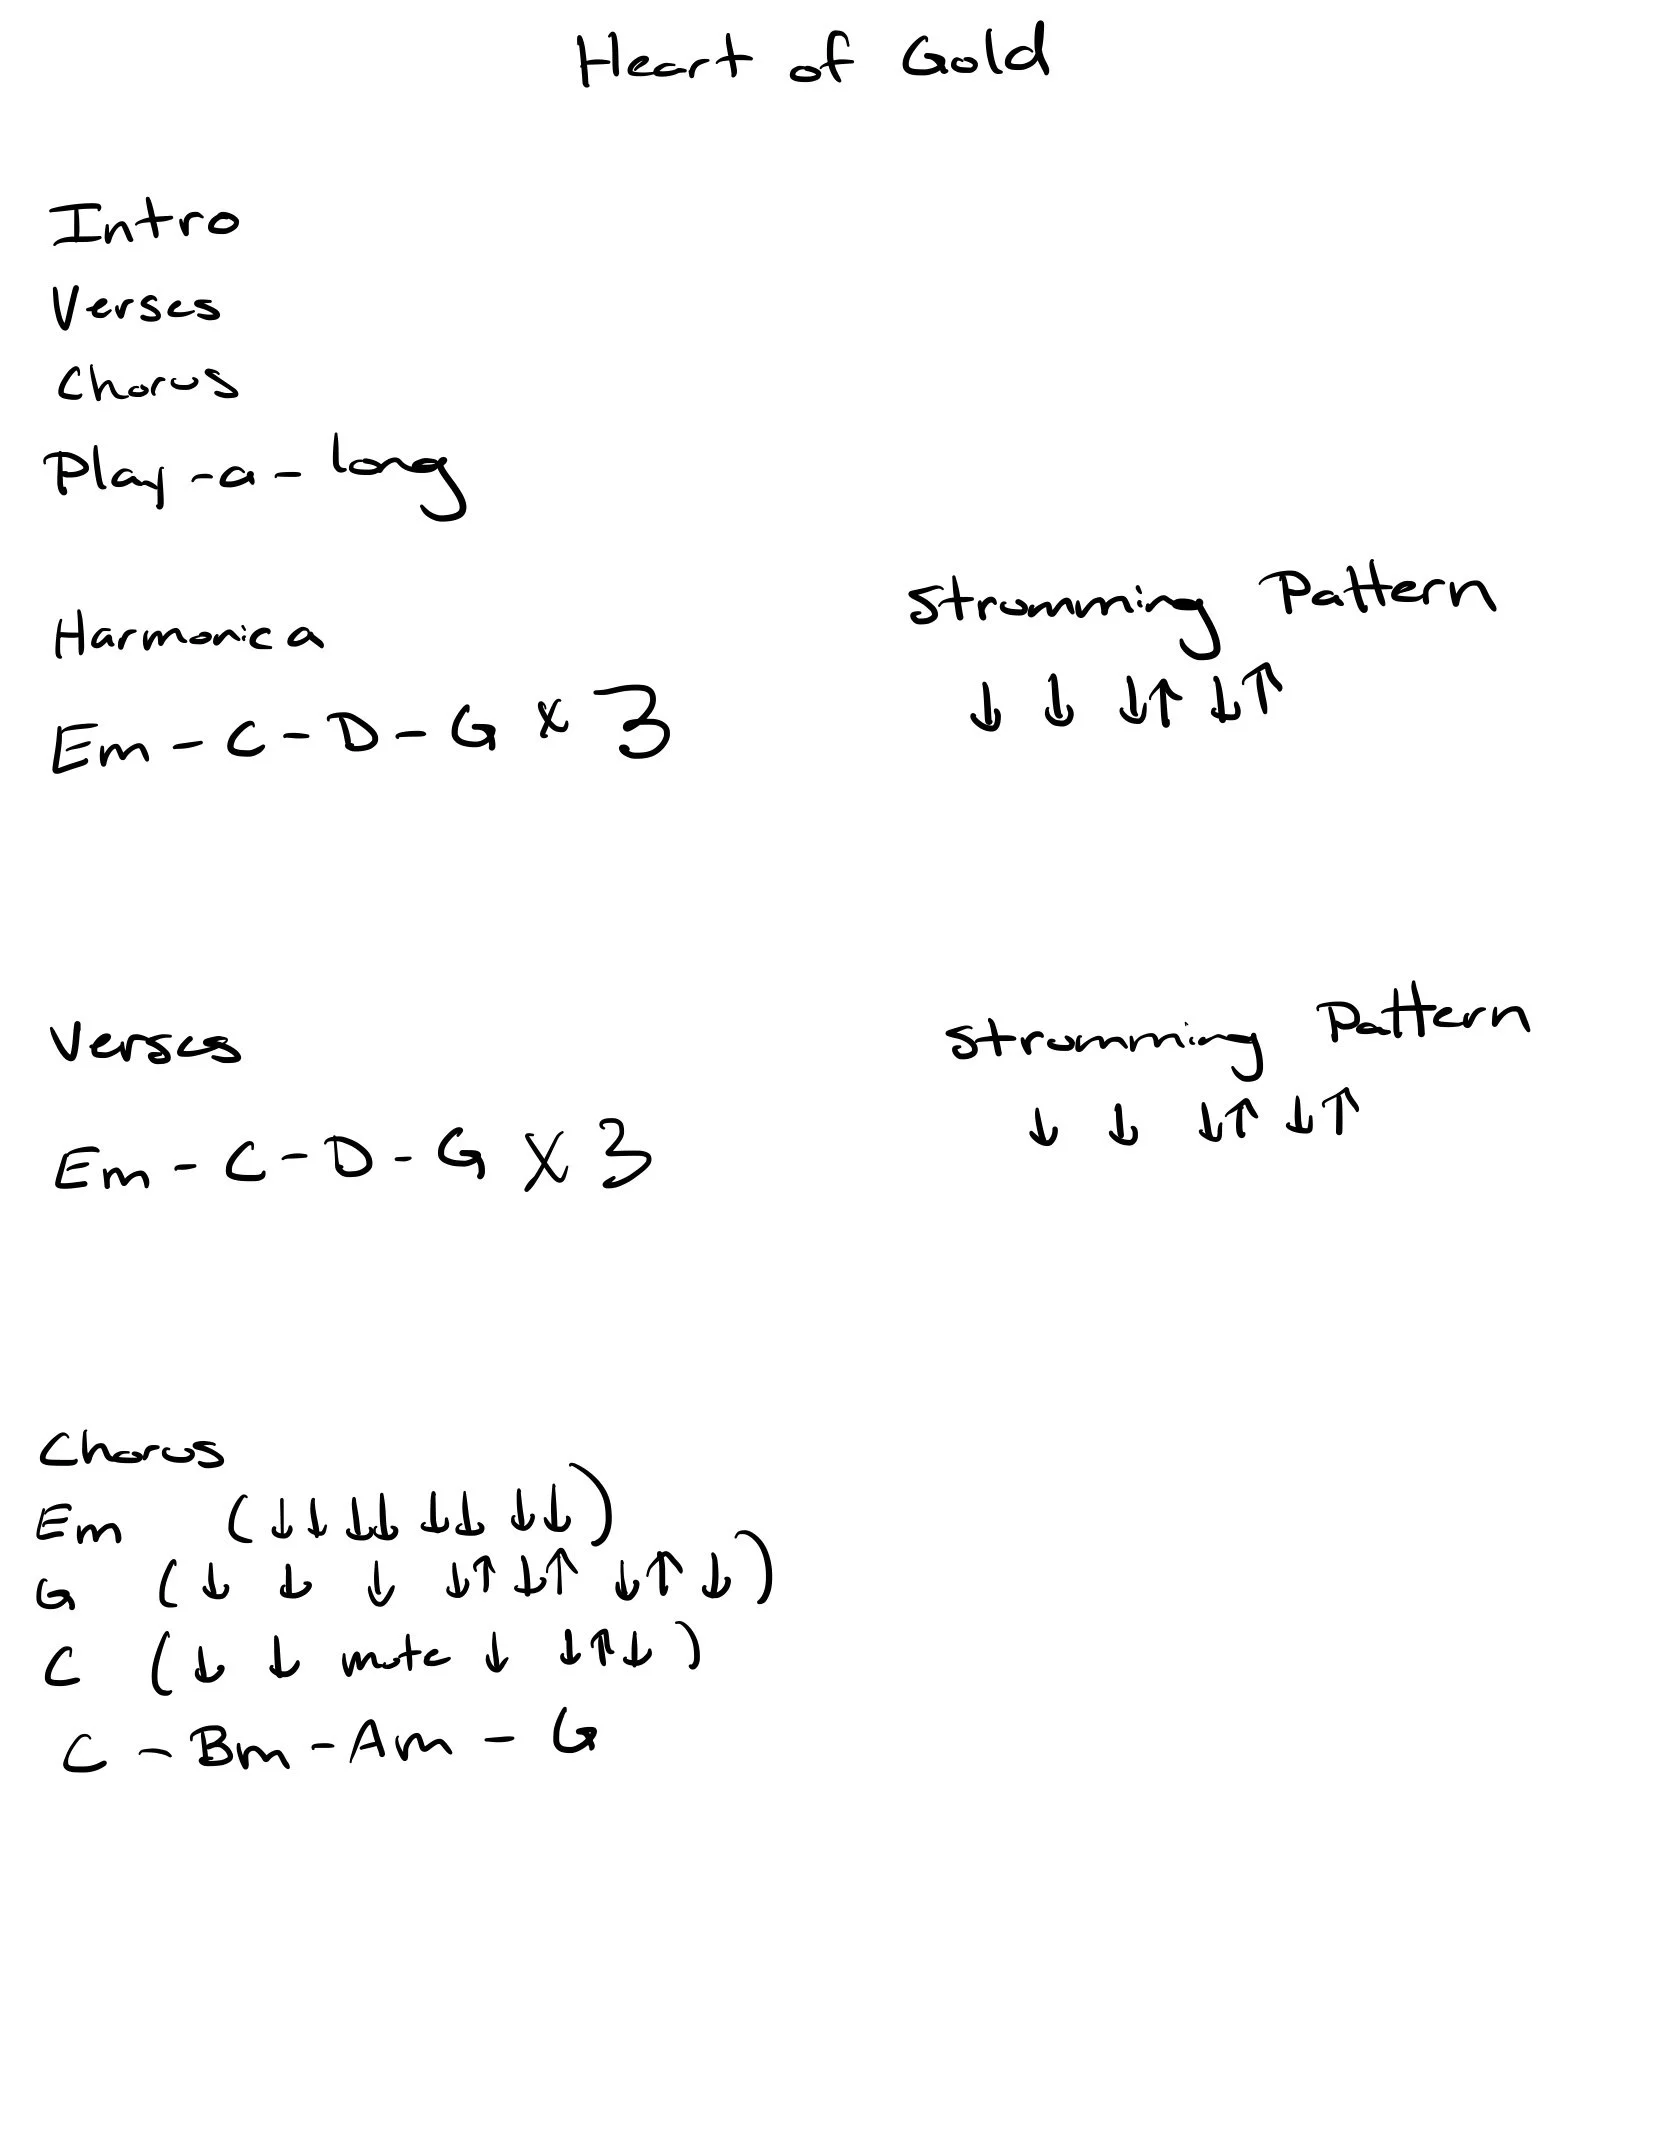 Heart of Gold
Intro
Verses
Chorus
Play-a-long
Harmonica
Strumming Pattern
Em - C - D - G x 3
↓ ↓ ↓↑ ↓↑
Verses
Strumming Pattern
Em - C - D - G x 3
↓ ↓ ↓↑ ↓↑
Chorus
Em (↓↓ ↓↓ ↓↓ ↓↓)
G (↓ ↓ ↓ ↓↑ ↓↑ ↓↑ ↓)
C (↓ ↓ mute ↓ ↓↑↓)
C - Bm - Am - G